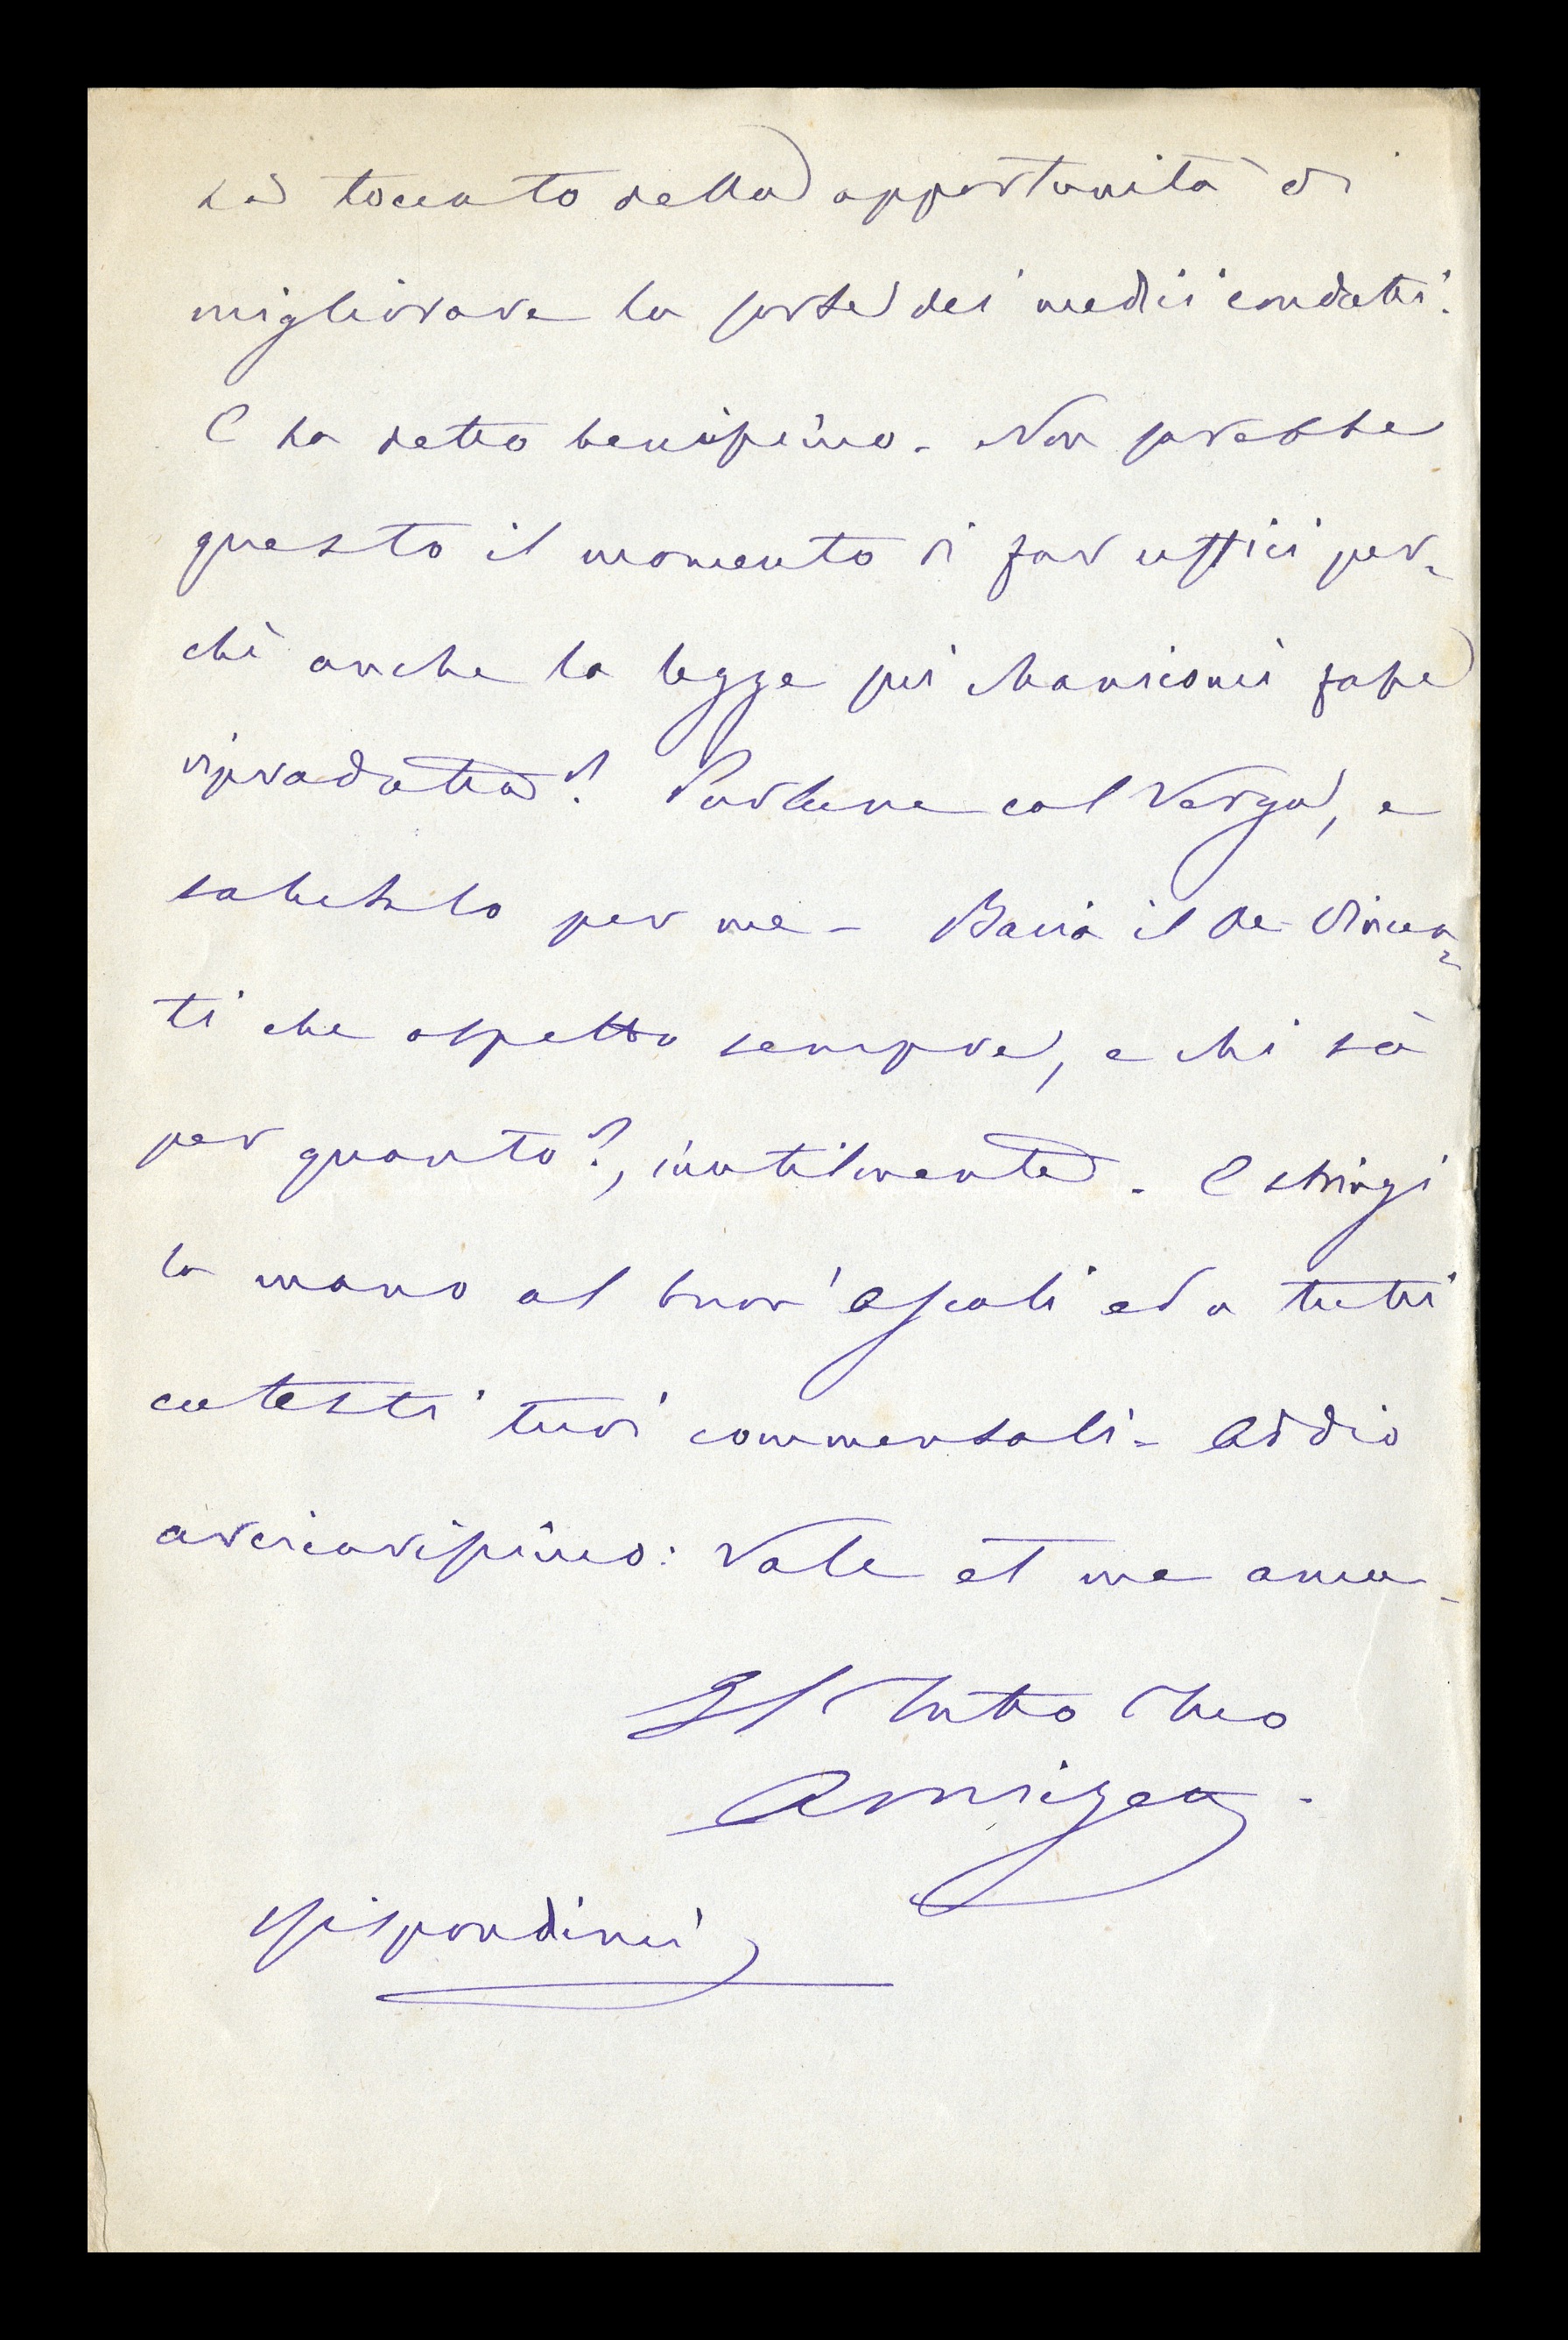 ha toccato della opportunità di
migliorare la sorte dei medici condotti.
E ha detto benissimo. Non sarebbe
questo il momento di far uffici per-
chè anche la legge sui Manicomi fosse
ripradotta? Parlane col Verga, e
salutalo per me - Bacia il De-Vincen-
ti che aspetto sempre, e chi sà
per quanto?, inutilmente. E stringi
la mano al buon' Ascoli ed a tutti
cotesti tuoi commensali - Addio
arcicarissimo: Vale et me ama -
Il tutto Tuo
Rispondimi